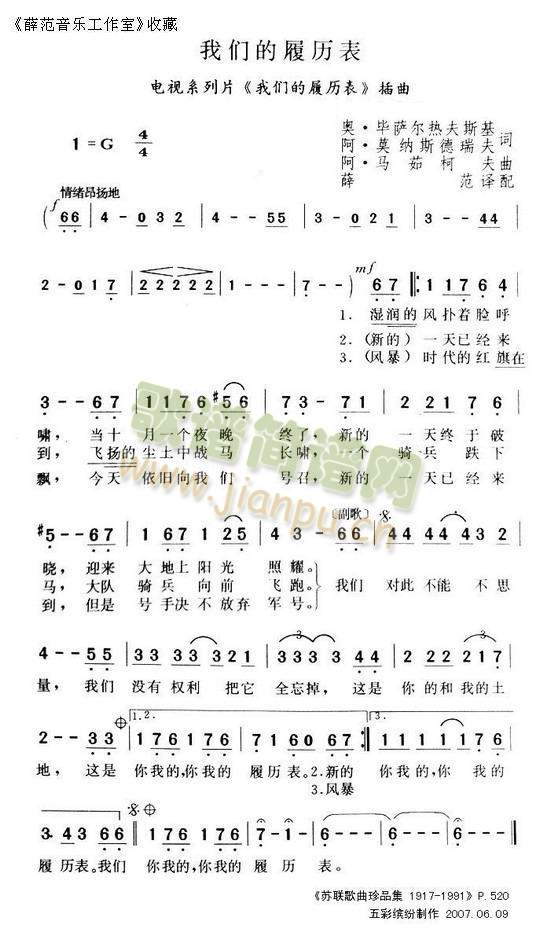 《薛范音乐工作室》收藏
我们的履历表
电视系列片《我们的履历表》插曲
1=G 4/4
奥·毕萨尔热夫斯基
阿·莫纳斯德瑞夫 词
阿·马茹柯夫曲
薛范译配
情绪昂扬地
(f 66 | 4-032 | 4--55 | 3-021 | 3--44 |
2-017 | 22222 | 1--- | 7--) mf 67 |: 11764 |
1. 湿润的风扑着脸呼
2.(新的)一天已经来
3.(风暴)时代的红旗在
3--67 | 1176 #56 | 73-71 | 22176 |
啸,当十月一个夜晚终了,新的一天终于破
到,飞扬的尘土中战马长啸,一个骑兵跌下
飘,今天依旧向我们号召,新的一天已经来
〔副歌〕
#5--67 | 1671 25 | 43-66 | 44 44 43 2 |
晓,迎来大地上阳光照耀。
马,大队骑兵向前飞跑。 我们对此不能不思
到,但是号手决不放弃军号。
4--55 | 33 33 321 | 333 3 44 | 222 217 |
量,我们没有权利把它全忘掉,这是你的和我的土
1.2.
3.
2--33 | 176 176 176 | 71 60 67 :| 111 1176 |
地,这是你我的,你我的履历表。2.新的 你我的,你我的
3.风暴
3. 43 66 || 176 176 176 | 7-1- | 6--- | 6-6- | 6--- ||
履历表。我们 你我的,你我的履历表。
《苏联歌曲珍品集 1917-1991》P.520
五彩缤纷制作 2007.06.09
歌谱简谱网
www.jianpu.cn